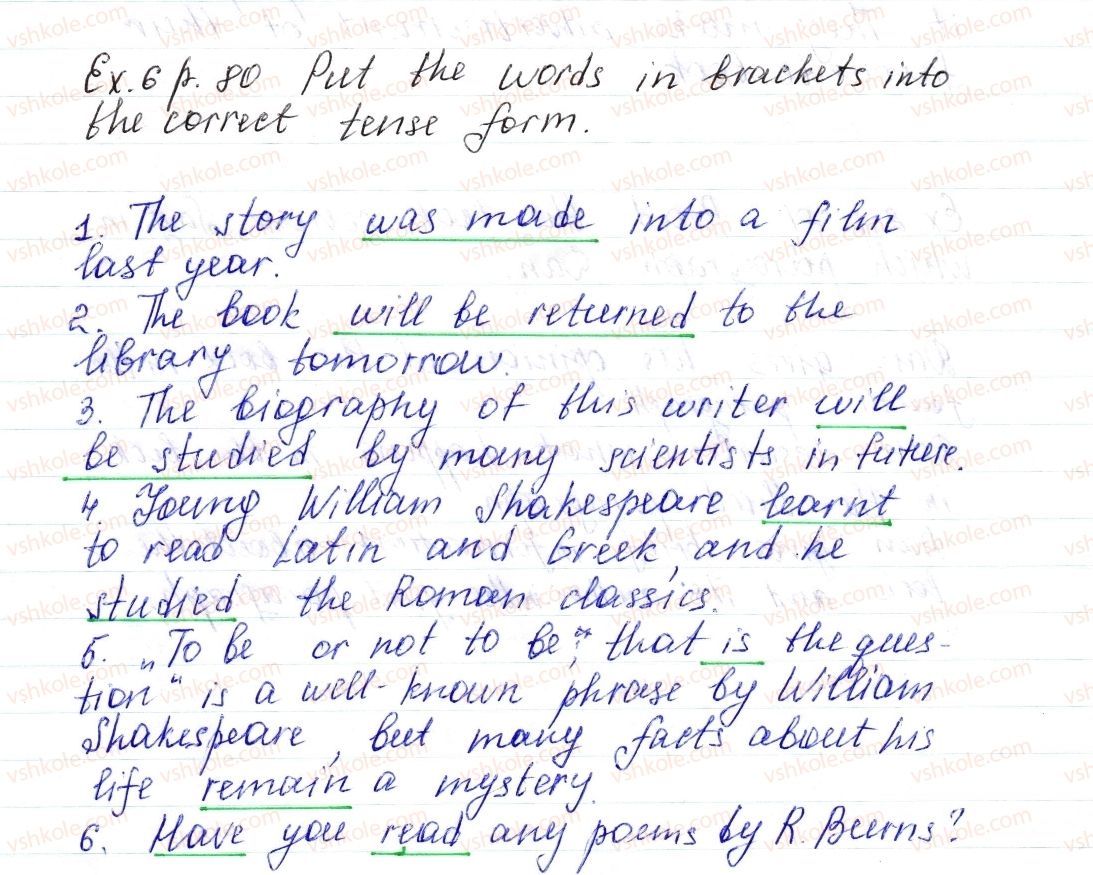 Ex. 6 p. 80 Put the words in brackets into
the correct tense form.
1. The story was made into a film
last year.
2. The book will be returned to the
library tomorrow.
3. The biography of this writer will
be studied by many scientists in future.
4. Young William Shakespeare learnt
to read Latin and Greek, and he
studied the Roman classics.
5. „To be or not to be": that is the ques-
tion" is a well-known phrase by William
Shakespeare, but many facts about his
life remain a mystery.
6. Have you read any poems by R. Burns?
vshkole.com